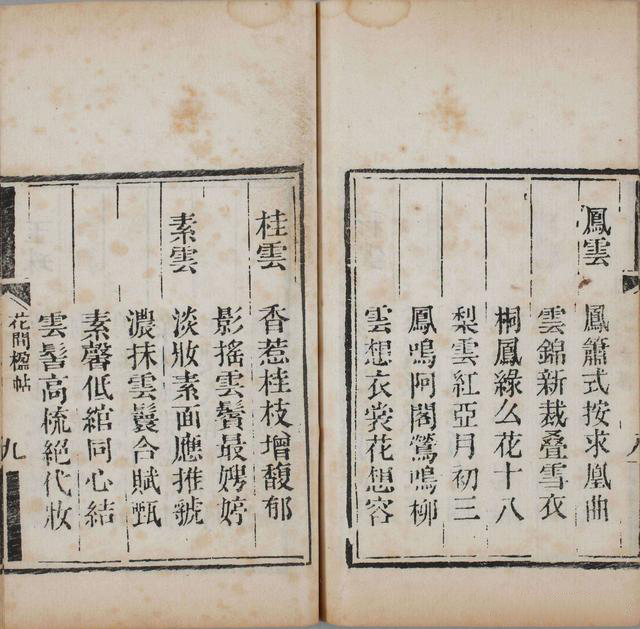 鳳雲
鳳簫式按求凰曲
雲錦新裁叠雪衣
桐鳳緣么花十八
梨雲紅亞月初三
鳳鳴阿閣鶯鳴柳
雲想衣裳花想容
桂雲
香惹桂枝增馥郁
影搖雲鬢最娉婷
素雲
淡妝素面應推虢
濃抹雲鬟合賦甄
素馨低綰同心結
雲髻高梳絕代妝
花間楹帖
九